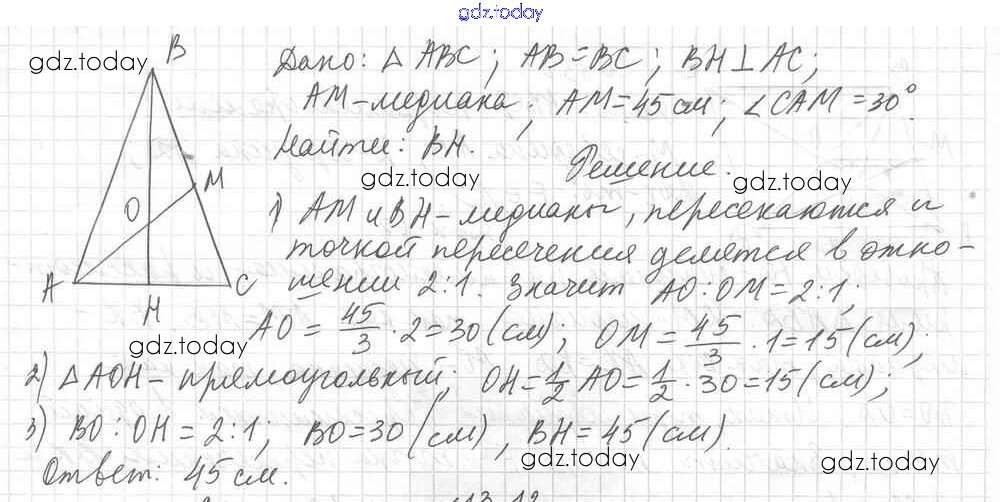 gdz.today
B
gdz.today
Дано: △ ABC; AB=BC; BH⊥AC;
AM-медиана; AM=45 см; ∠CAM=30°.
Найти: BH.
Решение.
gdz.today
M
O
A
C
H
1) AM и BH-медианы, пересекаются и
gdz.today
точкой пересечения делятся в отно-
шении 2:1. Значит AO:OM=2:1;
AO = 45/3 · 2=30 (см); OM = 45/3 · 1=15 (см);
gdz.today
2) △AOH-прямоугольный; OH=1/2 AO=1/2 · 30=15 (см);
3) BO:OH=2:1; BO=30 (см), BH=45 (см).
Ответ: 45 см.
gdz.today
gdz.today